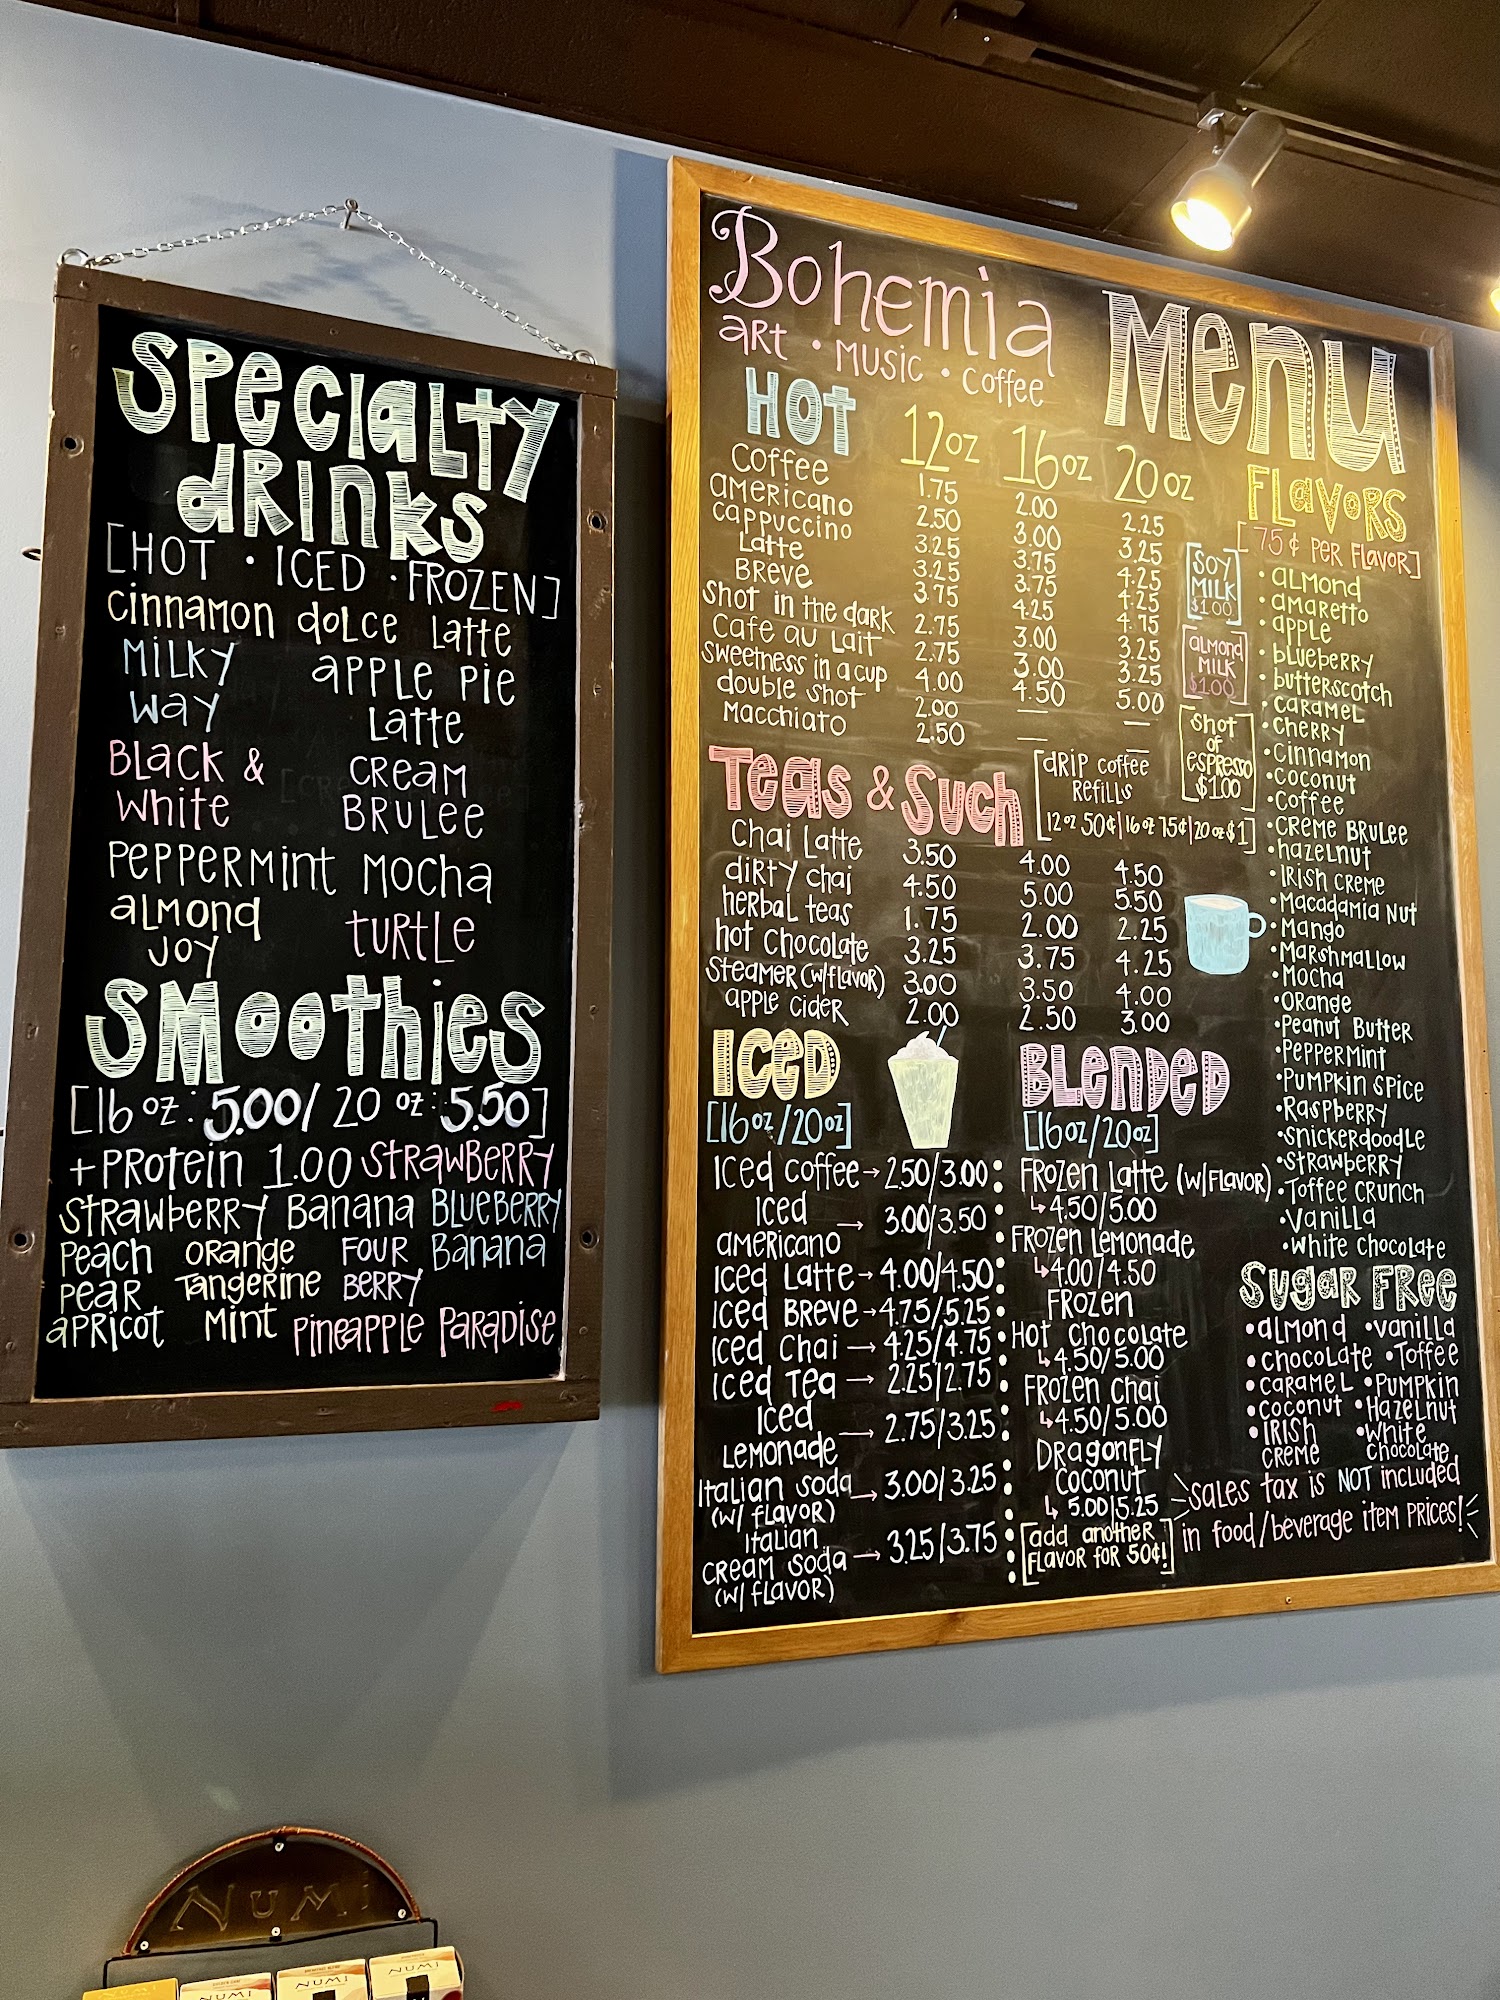 Specialty
drinks
[Hot · Iced · Frozen]
Cinnamon dolce Latte
Milky Way
Apple Pie Latte
Black & White
Cream Brulee
Peppermint Mocha
Almond Joy
Turtle
Smoothies
[16 oz: 5.00/ 20 oz: 5.50]
+ Protein 1.00 Strawberry
Strawberry Banana Blueberry
Peach Orange Four Banana
Pear Tangerine Berry
Apricot Mint Pineapple Paradise
Bohemia
Art · Music · Coffee
Menu
Hot 12oz 16oz 20oz
Coffee 1.75 2.00 2.25
Americano 2.50 3.00 3.25
Cappuccino 3.25 3.75 4.25
Latte 3.25 3.75 4.25
Breve 3.75 4.25 4.75
Shot in the dark 2.75 3.00 3.25
Cafe au Lait 2.75 3.00 3.25
Sweetness in a cup 4.00 4.50 5.00
double shot 2.00 — —
Macchiato 2.50 — —
[Soy Milk $1.00]
[Almond Milk $1.00]
[Shot of espresso $1.00]
Teas & Such
[drip coffee
Refills
12oz 50¢|16oz 75¢|20oz $1]
Chai Latte 3.50 4.00 4.50
dirty chai 4.50 5.00 5.50
herbal teas 1.75 2.00 2.25
hot chocolate 3.25 3.75 4.25
Steamer (w/flavor) 3.00 3.50 4.00
apple cider 2.00 2.50 3.00
Iced
[16oz/20oz]
Iced coffee → 2.50/3.00
Iced americano → 3.00/3.50
Iced Latte → 4.00/4.50
Iced Breve → 4.75/5.25
Iced Chai → 4.25/4.75
Iced Tea → 2.25/2.75
Iced Lemonade → 2.75/3.25
Italian soda (w/ flavor) → 3.00/3.25
Italian cream soda (w/ flavor) → 3.25/3.75
Blended
[16oz/20oz]
Frozen Latte (w/flavor)
↳ 4.50/5.00
Frozen Lemonade
↳ 4.00/4.50
Frozen
Hot Chocolate
↳ 4.50/5.00
Frozen Chai
↳ 4.50/5.00
Dragonfly
Coconut
↳ 5.00/5.25
[add another
flavor for 50¢!]
Flavors
[75¢ per flavor]
• Almond
• Amaretto
• Apple
• Blueberry
• Butterscotch
• Caramel
• Cherry
• Cinnamon
• Coconut
• Coffee
• Creme Brulee
• Hazelnut
• Irish Creme
• Macadamia Nut
• Mango
• Marshmallow
• Mocha
• Orange
• Peanut Butter
• Peppermint
• Pumpkin Spice
• Raspberry
• Snickerdoodle
• Strawberry
• Toffee Crunch
• Vanilla
• White Chocolate
Sugar Free
• Almond • Vanilla
• Chocolate • Toffee
• Caramel • Pumpkin
• Coconut • Hazelnut
• Irish Creme • White Chocolate
Sales tax is NOT included
in food/beverage item prices!
NUMI
NUMI
NUMI
NUMI
NUMI